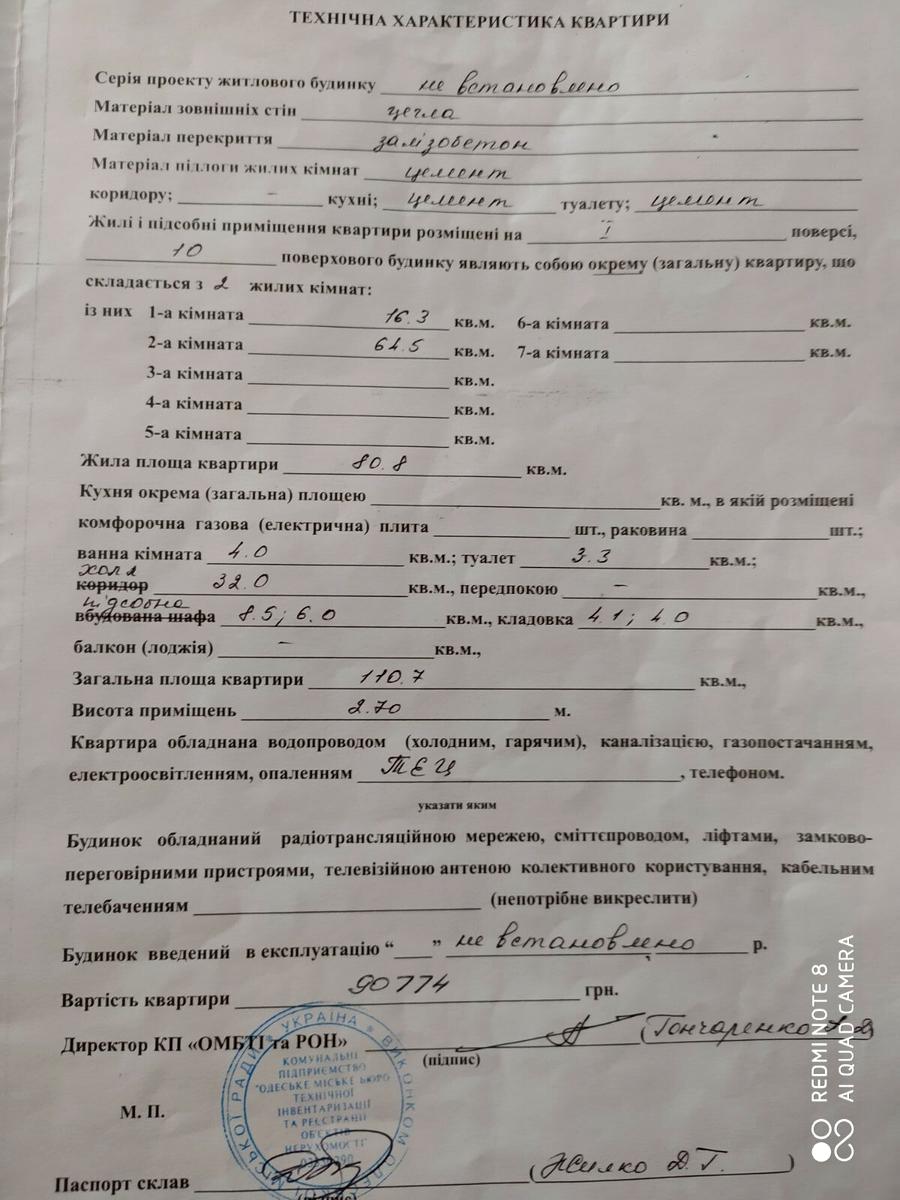 ТЕХНІЧНА ХАРАКТЕРИСТИКА КВАРТИРИ
Серія проекту житлового будинку не встановлено
Матеріал зовнішніх стін цегла
Матеріал перекриття залізобетон
Матеріал підлоги жилих кімнат цемент
коридору; – кухні; цемент туалету; цемент
Жилі і підсобні приміщення квартири розміщені на I поверсі,
10 поверхового будинку являють собою окрему (загальну) квартиру, що
складається з 2 жилих кімнат:
із них 1-а кімната 16.3 кв.м. 6-а кімната кв.м.
2-а кімната 64.5 кв.м. 7-а кімната кв.м.
3-а кімната кв.м.
4-а кімната кв.м.
5-а кімната кв.м.
Жила площа квартири 80.8 кв.м.
Кухня окрема (загальна) площею кв. м., в якій розміщені
комфорочна газова (електрична) плита шт., раковина шт.;
ванна кімната 4.0 кв.м.; туалет 3.3 кв.м.;
хол
коридор 32.0 кв.м., передпокою – кв.м.,
підсобна
вбудована шафа 8.5; 6.0 кв.м., кладовка 4.1; 4.0 кв.м.,
балкон (лоджія) – кв.м.,
Загальна площа квартири 110.7 кв.м.,
Висота приміщень 2.70 м.
Квартира обладнана водопроводом (холодним, гарячим), каналізацією, газопостачанням,
електроосвітленням, опаленням ТЕЦ , телефоном.
указати яким
Будинок обладнаний радіотрансляційною мережею, сміттєпроводом, ліфтами, замково-
переговірними пристроями, телевізійною антеною колективного користування, кабельним
телебаченням (непотрібне викреслити)
Будинок введений в експлуатацію “ ” не встановлено р.
Вартість квартири 90774 грн.
Директор КП «ОМБТІ та РОН» (Гончаренко
(підпис)
УКРАЇНА * ВИКОНКОМ
КОМУНАЛЬНЕ
ПІДПРИЄМСТВО
"ОДЕСЬКЕ МІСЬКЕ БЮРО
ТЕХНІЧНОЇ
ІНВЕНТАРИЗАЦІЇ
ТА РЕЄСТРАЦІЇ
ОБ'ЄКТІВ
НЕРУХОМОСТІ"
М. П.
Паспорт склав (Жилко Д.Г. )
REDMI NOTE 8
AI QUAD CAMERA